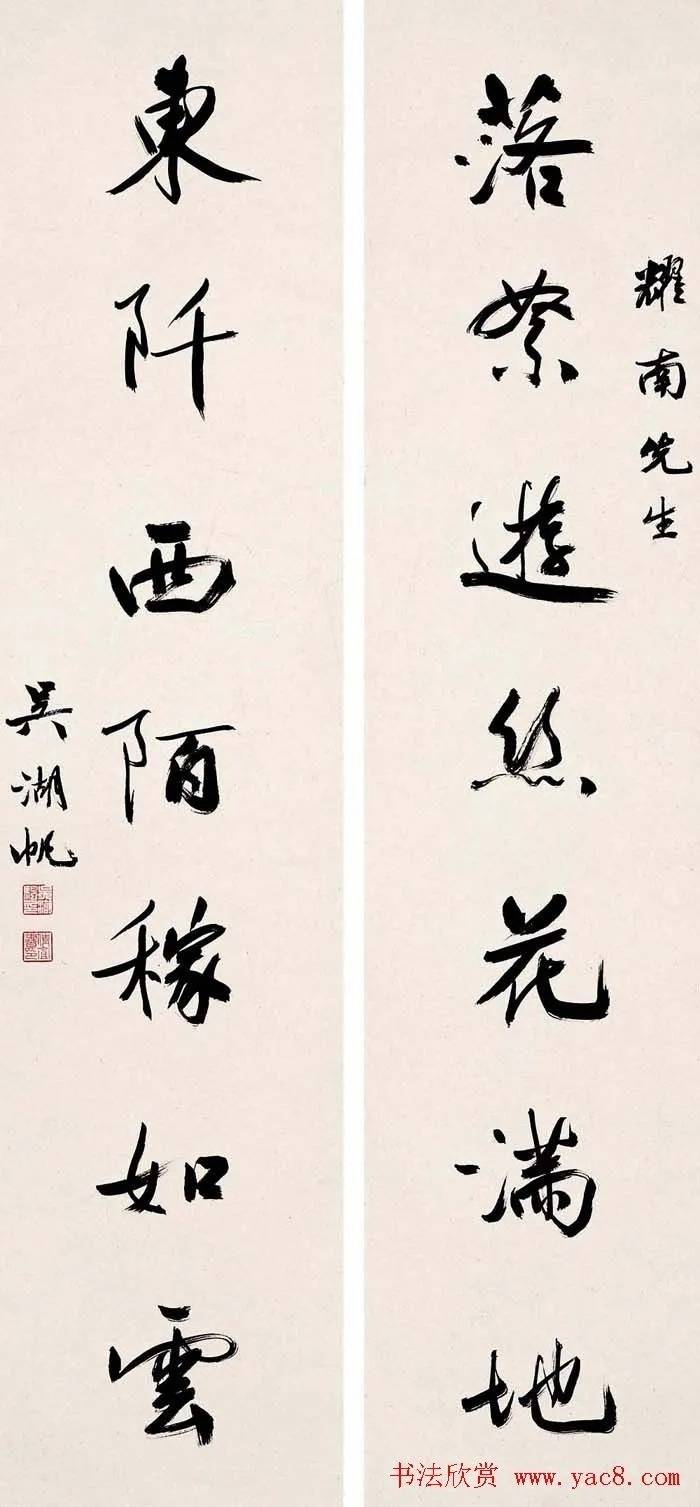 耀南先生
落絮遊絲花滿地
東阡西陌稼如雲
吳湖帆
书法欣赏 www.yac8.com